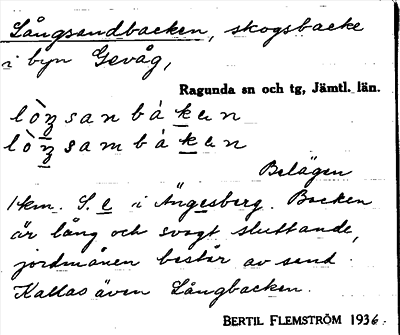 Långsandbacken, skogsbacke
i byn Gevåg,
Ragunda sn och tg, Jämtl. län.
lòŋsanbákan
lòŋsambákan
Belägen
1 km. S. e i Ängesberg. Backen
är lång och svagt sluttande,
jordmånen består av sand.
Kallas även Långbacken.
BERTIL FLEMSTRÖM 1936.